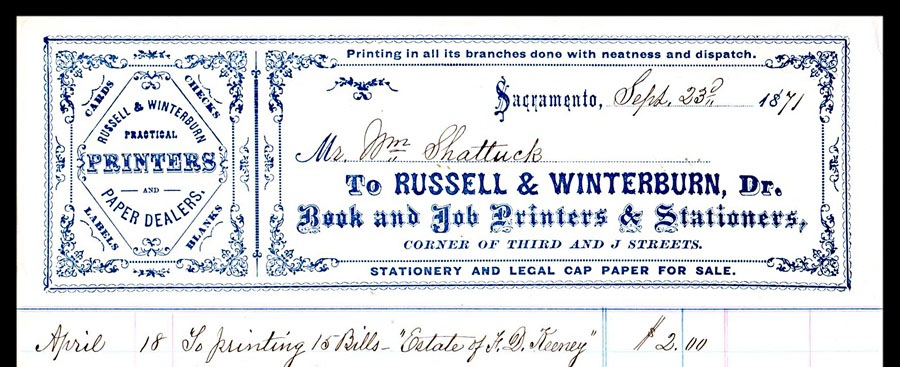 CARDS
CHECKS
RUSSELL & WINTERBURN
PRACTICAL
PRINTERS
AND
PAPER DEALERS.
LABELS
BLANKS
Printing in all its branches done with neatness and dispatch.
Sacramento, Sept. 23d 1871
Mr. Wm Shattuck
To RUSSELL & WINTERBURN, Dr.
Book and Job Printers & Stationers,
CORNER OF THIRD AND J STREETS.
STATIONERY AND LEGAL CAP PAPER FOR SALE.
April 18 To printing 15 Bills - "Estate of F. D. Keeney" $2.00